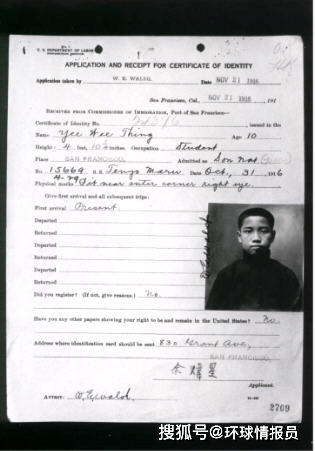 U. S. DEPARTMENT OF LABOR
APPLICATION AND RECEIPT FOR CERTIFICATE OF IDENTITY
Application taken by W. E. WALSH. Date NOV 21 1916
San Francisco, Cal., NOV 21 1916 , 191
RECEIVED FROM COMMISSIONER OF IMMIGRATION, Port of San Francisco—
Certificate of Identity No. , issued in the
Name Yee Wee Thing Age 10
Height 4 feet, 10½ inches Occupation Student
Place SAN FRANCISCO, Admitted as Son Nat
No 15669 4-29 S.S Tenyo Maru Date Oct, 31 1916
Physical marks Pit near outer corner right eye.
Give first arrival and all subsequent trips:
First arrival Present.
Departed
Returned
Departed
Returned
Departed
Returned
Did you register? (If not, give reasons.) No.
Have you any other papers showing your right to be and remain in the United States? No.
Address where identification card should be sent 830 Grant Ave,
SAN FRANCISCO,
余煒星
Applicant.
ATTEST: W. Ewald
2709
搜狐号@环球情报员